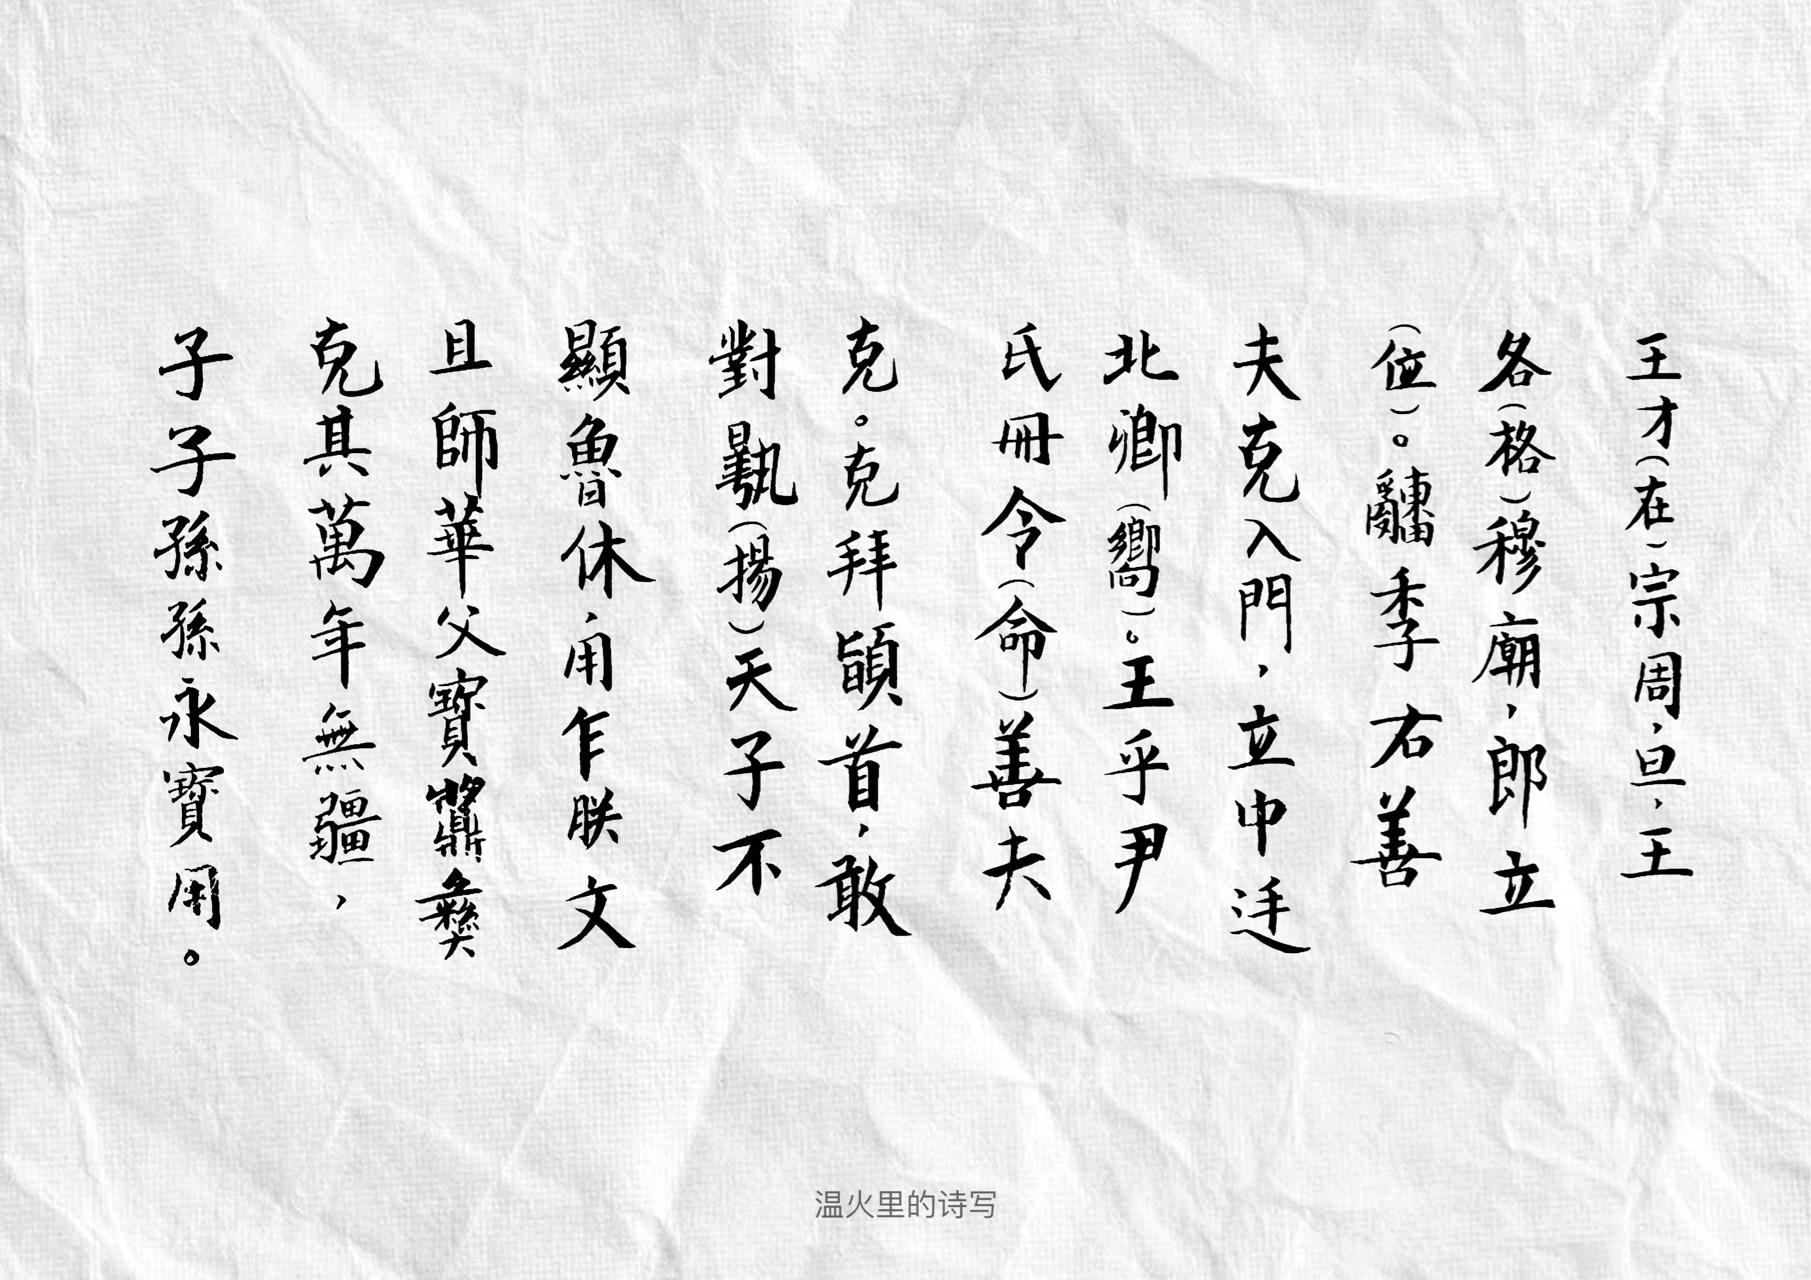 王才（在）宗周，旦，王
各（格）穆廟，郎立
（位）。𤔲季右善
夫克入門，立中廷
北卿（嚮）。王乎尹
氏冊令（命）善夫
克。克拜䭫首，敢
對（揚）天子不
顯魯休用乍朕文
且師華父寶䵼彝
克其萬年無疆，
子子孫孫永寶用。
温火里的诗写